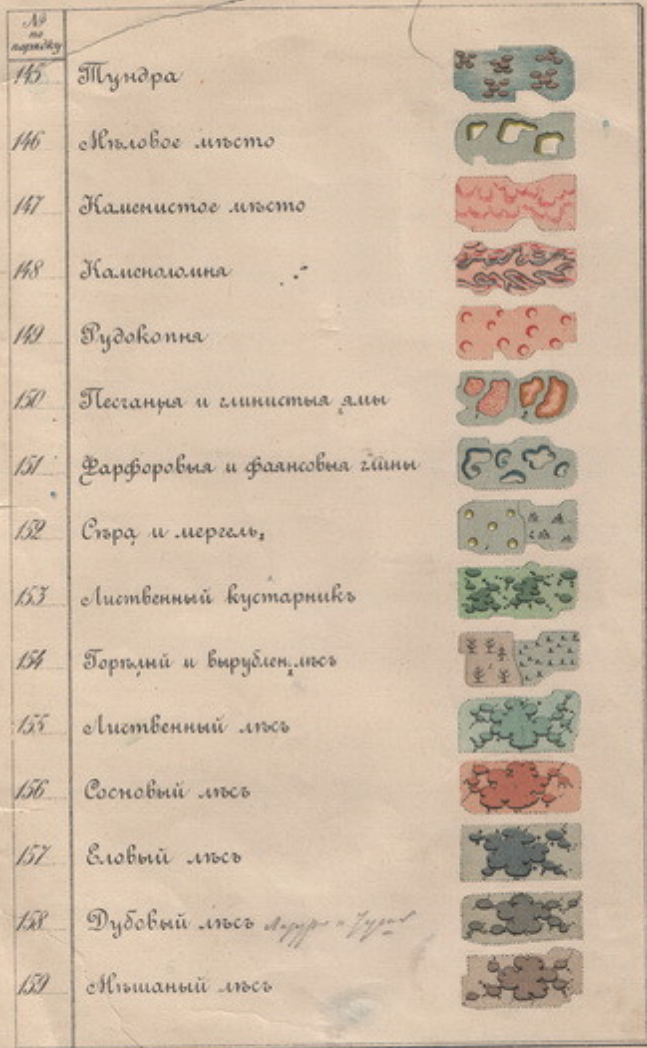 №
по
порядку
145 Тундра
146 Мѣловое мѣсто
147 Каменистое мѣсто
148 Каменоломня
149 Рудокопня
150 Песчаныя и глинистыя ямы
151 Фарфоровыя и фаянсовыя глины
152 Сѣра и мергель
153 Лиственный кустарникъ
154 Горѣлый и вырублен. лѣсъ
155 Лиственный лѣсъ
156 Сосновый лѣсъ
157 Еловый лѣсъ
158 Дубовый лѣсъ
159 Мѣшаный лѣсъ